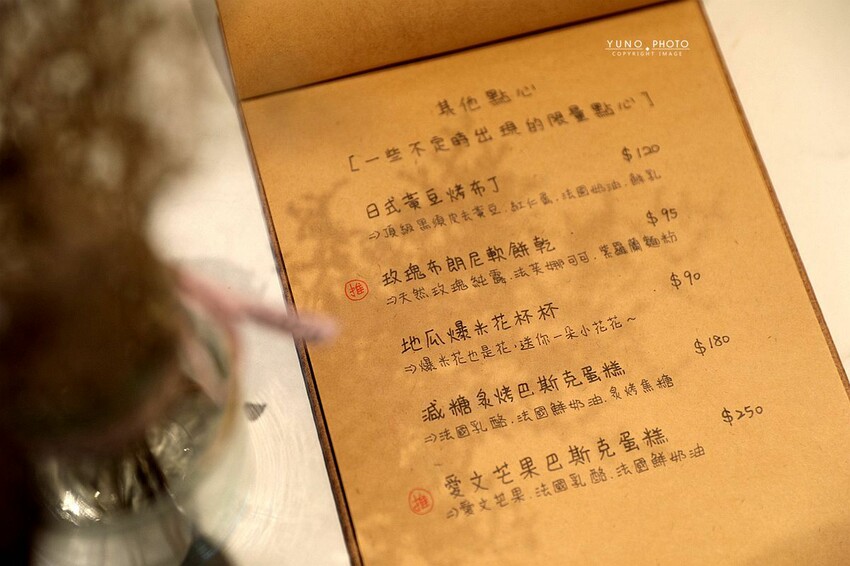 YUNO PHOTO
COPYRIGHT IMAGE
其他點心
[一些不定時出現的限量點心]
日式黃豆烤布丁 $120
⇒頂級黑須皮去黃豆.紅仁蛋.法國奶油.鮮乳
玫瑰布朗尼軟餅乾 $95
推 ⇒天然玫瑰純露.法芙娜可可.紫羅蘭麵粉
地瓜爆米花杯杯 $90
⇒爆米花也是花,送你一朵小花花~
減糖炙烤巴斯克蛋糕 $180
⇒法國乳酪.法國鮮奶油.炙烤焦糖
愛文芒果巴斯克蛋糕 $250
推 ⇒愛文芒果.法國乳酪.法國鮮奶油